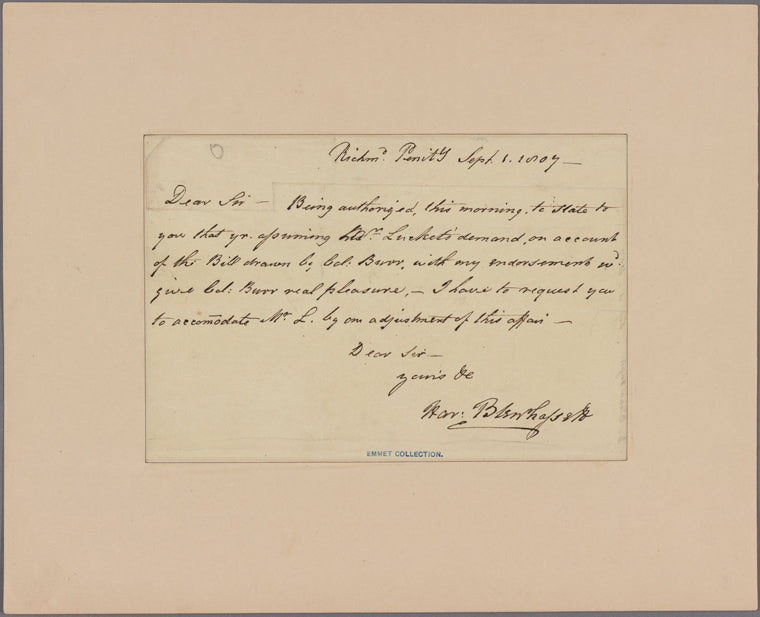 Richmd. Penity Sept. 1. 1807 —
Dear Sir — Being authorized, this morning, to state to
you that yr. assuming Mr. Lucket's demand, on account
of the Bill drawn by Col: Burr, with my endorsement wd.
give Col: Burr real pleasure, — I have to request you
to accomodate Mr. L. by an adjustment of this affair —
Dear Sir —
yours &c
Har: Blennhassett
EMMET COLLECTION.